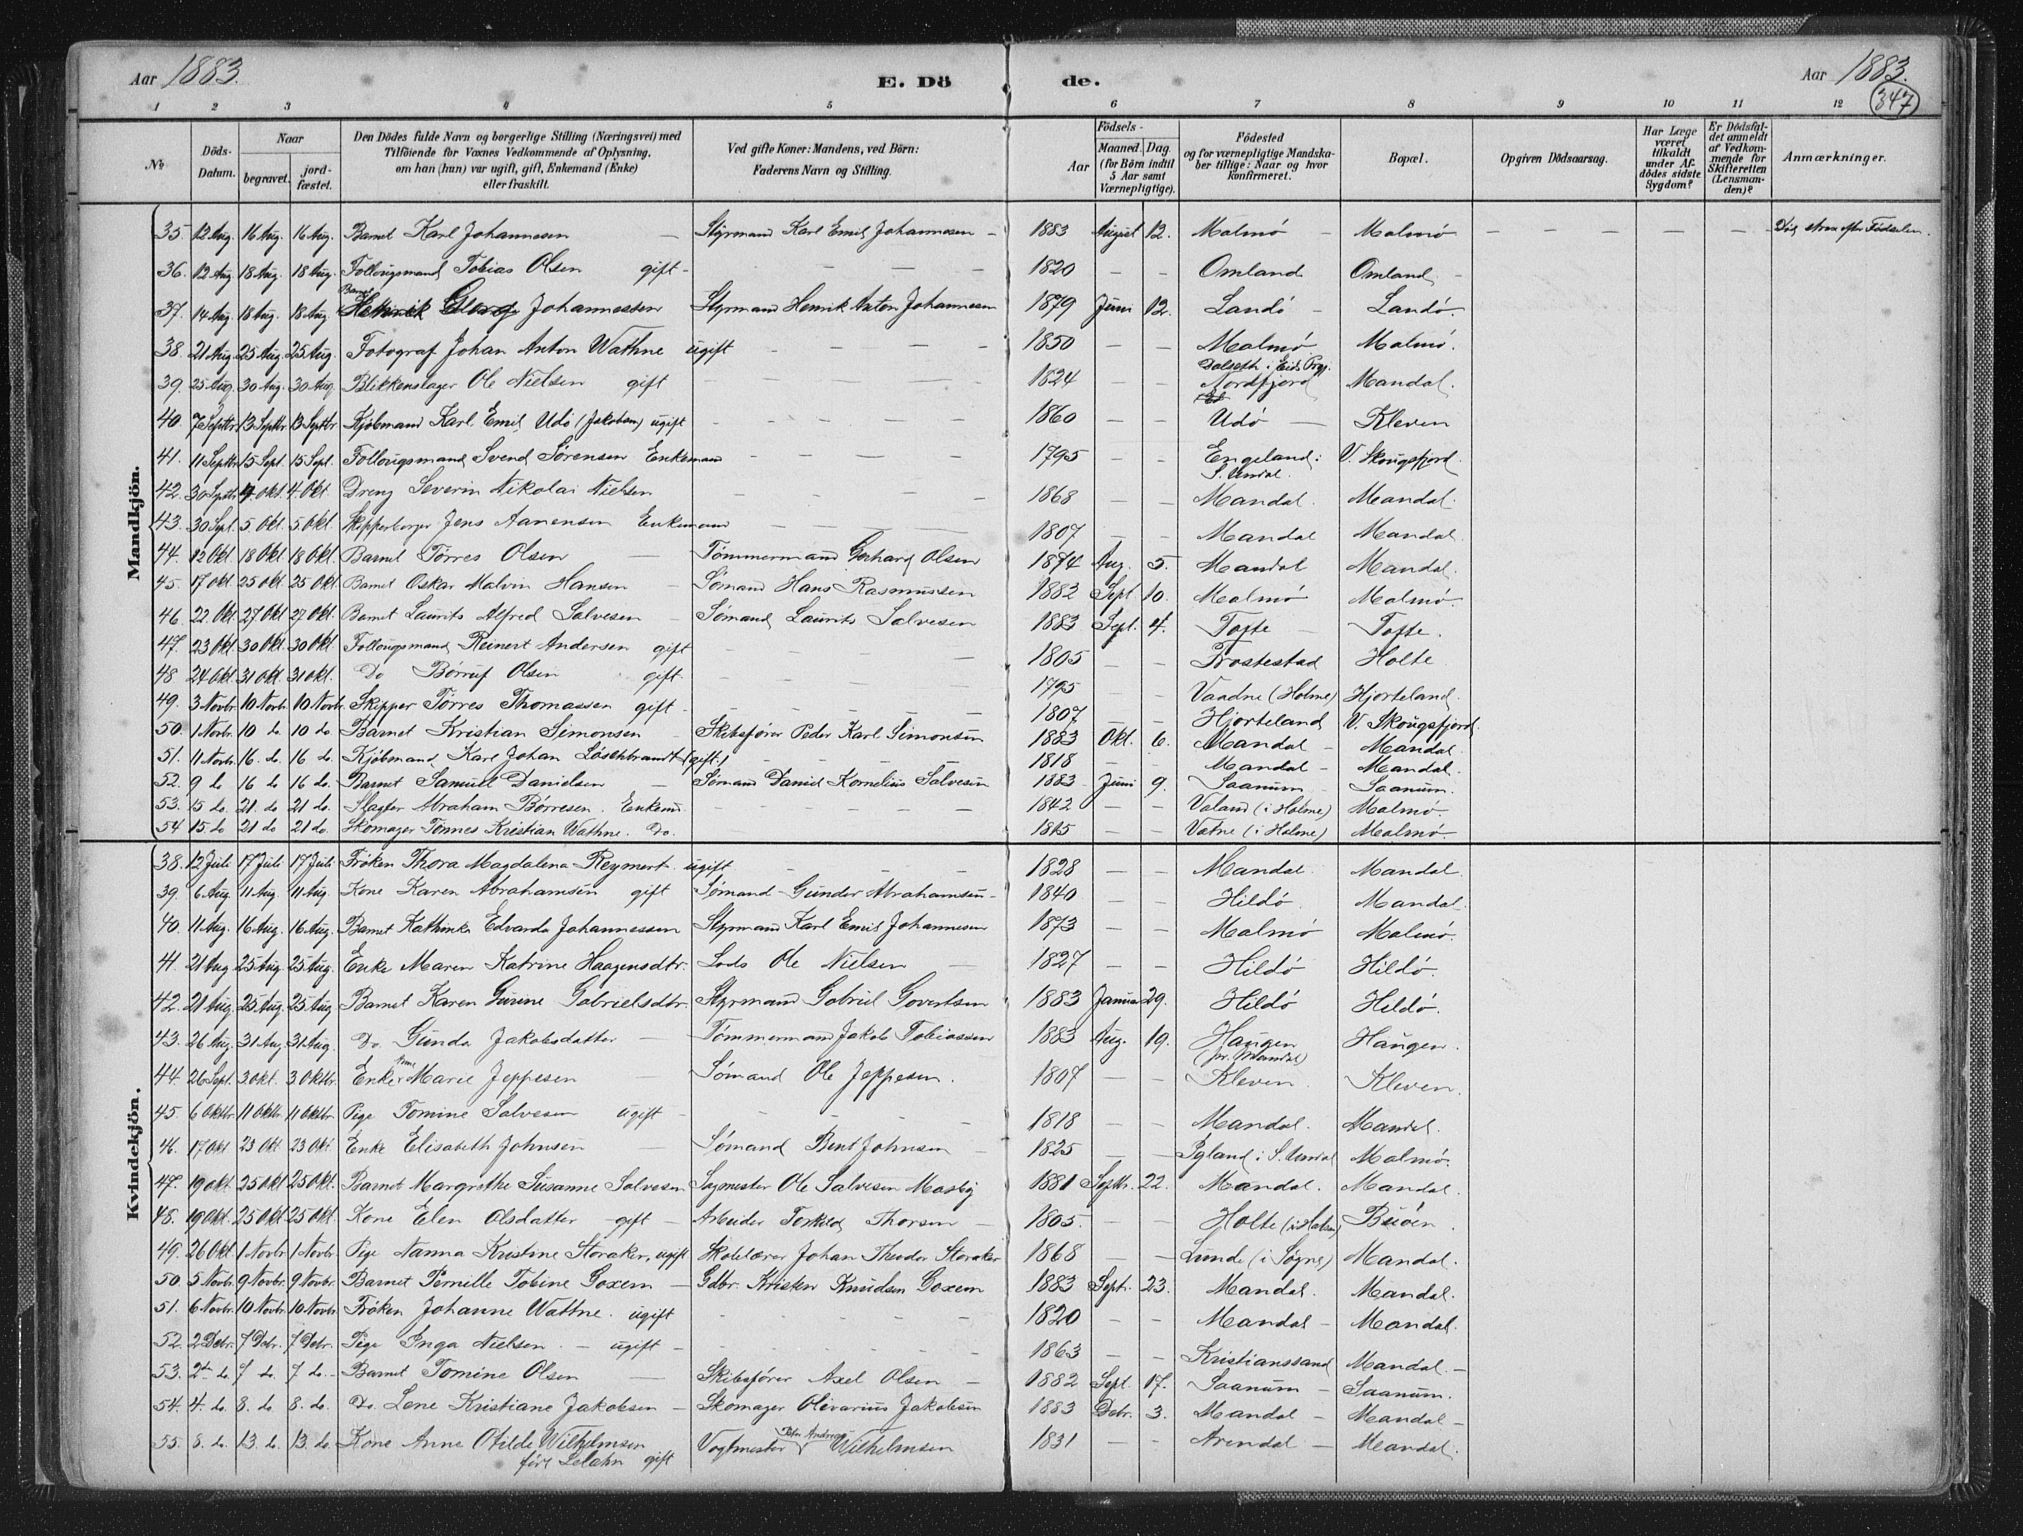 Aar 1883.
E. Dö de.
Aar 1883.
347
1 2 3 4 5 6 7 8 9 10 11 12
No
Döds-Datum.
Naar
begravet.
jord-fæstet.
Den Dödes fulde Navn og borgerlige Stilling (Næringsvei) med
Tilföiende for Voxnes Vedkommende af Oplysning,
om han (hun) var ugift, gift, Enkemand (Enke)
eller fraskilt.
Ved gifte Koner: Mandens, ved Börn:
Faderens Navn og Stilling.
Födsels-
Aar
Maaned. Dag.
(for Börn indtil
5 Aar samt
Værnepligtige).
Födested
og for værnepligtige Mandska-
ber tillige: Naar og hvor
konfirmeret.
Bopæl.
Opgiven Dödsaarsag.
Har Læge
været
tilkaldt
under Af-
dödes sidste
Sygdom?
Er Dödsfal-
det anmeldt
af Vedkom-
mende for
Skifteretten
(Lensman-
den)?
Anmærkninger.
Mandkjön.
35. 12 Aug. 16 Aug. 16 Aug. Barnet Karl Johannesen — Styrmand Karl Emil Johannesen — 1883 August 12. Malmö — Malmö — — — — — — Död strax efter Födselen.
36. 12 Aug. 18 Aug. 18 Aug. Follougsmand Tobias Olsen gift — — — — 1820 — — Omland Omland —
37. 14 Aug 18 Aug. 18 Aug Barnet Henrik Georg Johannessen Styrmand Henrik Anton Johannesen 1879 Juni 12. Landö — Landö.
38. 21 Aug. 25 Aug. 25 Aug. Fotograf Johan Anton Wathne ugift — — — — 1850 — — Malmö Malmö.
39. 25 Aug. 30 Aug. 30 Aug. Blikkenslager Ole Nielsen gift — — — — 1824 — — Dalseth i Eids Prgj. Nordfjord Mandal.
40. 7 Septbr. 13 Septbr 13 Septbr. Kjöbmand Karl Emil Udö (Jakobsen) ugift — — — — 1860 — — Udö — Kleven
41. 11 Septbr. 15 Sept. 15 Sept. Follougsmand Svend Sörensen Enkemand — — — 1795 — — Engeland i S. Undal. V. Skougsfjord.
42. 30 Septb. 4 Okt. 4. Okt Dreng Severin Nikolai Nielsen — — — — 1868 — — Mandal. Mandal.
43. 30 Sept. 5 Okt. 5. Okt. Skipperborger Jens Aanensen Enkemand — — — 1807 — — Mandal Mandal.
44. 12 Okt 18 Okt. 18 Okt. Barnet Törres Olsen — Tömmermand Gerhard Olsen 1874 Aug. 5. Mandal Mandal.
45. 17 Okt 25 Okt 25 Okt Barnet Oskar Malvin Hansen — Sömand Hans Rasmussen 1882 Sept 10. Malmö Malmö.
46. 22 Okt. 27 Okt 27 Okt. Barnet Laurits Alfred Salvesen — Sömand Laurits Salvesen 1883 Sept. 4. Tofte — Tofte.
47. 23 Okt 30 Okt 30 Okt Follougsmand Reinert Andersen gift — — — 1805 — — Frostestad Holte.
48 24 Okt 31 Okt 31 Okt. Do Börruf Olsen gift. — — — 1795 — — Vaadne (Holme) Hjorteland.
49. 3 Novbr. 10 Novbr 10 Novbr. Skipper Törres Thomassen gift — — — — 1807 — — Hjorteland V. Skougsfjord.
50. 1 Novbr. 10 do 10 do. Barnet Kristian Simonsen — Skibsförer Peder Karl Simonsen 1883 Okt. 6. Mandal — Mandal.
51. 11 Novbr. 16. do. 16 do. Kjöbmand Karl Johan Löschbrandt (gift.) — — — 1818 — — Mandal — Mandal.
52. 9 do 16 do 16 do. Barnet Samuel Danielsen — Sömand Daniel Kornelius Salvesen 1883 Juni 9. Saanum — Saanum.
53. 15 do. 21 do 21 do. Slagter Abraham Börresen. Enkem. — — — — 1842 — — Valand (i Holme) Malmö.
54 15. do 21 do 21 do. Skomager Tönnes Kristian Wathne. Do. — — — — 1815 — — Vatne (i Holme) Malmö.
Kvindekjön.
38. 12 Juli 17 Juli 17 Juli. Fröken Thora Magdalena Reymert. ugift — — — 1828 — — Mandal. Mandal.
39. 6 Aug. 11 Aug. 11 Aug. Kone Karen Abrahamsen gift Sömand Gunder Abrahamsen — 1840 — — Hildö. Mandal.
40. 11 Aug. 16 Aug. 16 Aug. Barnet Kathinka Edvarda Johannessen Styrmand Karl Emil Johannesen 1873 — — Malmö Malmö.
41. 21 Aug 25 Aug 25 Aug. Enke Maren Katrine Haagensdtr. Lods Ole Nielsen — 1827 — — Hildö Hildö.
42. 21 Aug. 25 Aug. 25 Aug Barnet Karen Gurine Gabrielsdtr. Styrmand Gabriel Govertsen 1883 Januar 29. Hildö Hildö.
43. 26 Aug. 31 Aug 31 Aug. Do. Gunda Jakobsdatter — Tömmermand Jakob Tobiassen 1883 Aug. 19. Haugen (pr. Mandal) Haugen.
44. 26 Sept. 3. Okt. 3. Oktbr. Enke Marie Jeppesen — Sömand Ole Jeppesen. 1807 — — Kleven. Kleven.
45. 6 Oktbr. 11 Okt 11 Oktbr. Pige Tomine Salvesen ugift — — — — 1818 — — Mandal. Mandal.
46. 17 Okt 23 Okt 23 Okt. Enke Elisabeth Johnsen — Sömand Bent Johnsen — 1825 — — Igland i S. Undal Malmö.
47. 19 Okt. 25 Okt 25 Okt. Barnet Margrethe Susanne Salvesen Sagmester Ole Salvesen Mosby 1881 Septbr. 22. Mandal. Mandal.
48. 19 Okt. 25 Okt 25 Okt. Kone Elen Olsdatter gift — Arbeider Torkild Thorsen — 1805. — — Holte (i Holme) Buöen.
49. 26 Okt 1 Novbr 1 Novbr. Pige Nanna Kristine Storaker, ugift Skolelærer Johan Theodor Storaker 1868 — — Lunde (i Sögne) Mandal.
50. 5 Novbr. 9 Novbr. 9 Novbr. Barnet Pernille Tobine Goxem — Gdbr. Kristen Knudsen Goxem 1883 Septr. 23. Mandal. Mandal.
51. 6 Novbr 10 Novbr. 10 Novbr. Fröken Johanne Wattne. ugift — — — — 1820 — — Mandal — Mandal.
52. 2 Dcbr. 7 Dcbr. 7 Dcbr. Pige Inga Nielsen. — ugift — — — — 1863 — — Kristianssand Mandal. —
53. 2 do. 7 do. 7 do. Barnet Tomine Olsen — Skibsförer Axel Olsen — 1882 Sept. 17. Saanum — Saanum.
54. 4. do. 8. do. 8. do. Do. Lene Kristiane Jakobsen — Skomager Olivarius Jakobsen 1883 Dcbr. 3. Mandal — Mandal —
55. 8. do. 13. do. 13. do. Kone Anne Otilde Wilhelmsen gift Vogtmester Wilhelmsen 1831 — — Arendal — Mandal.